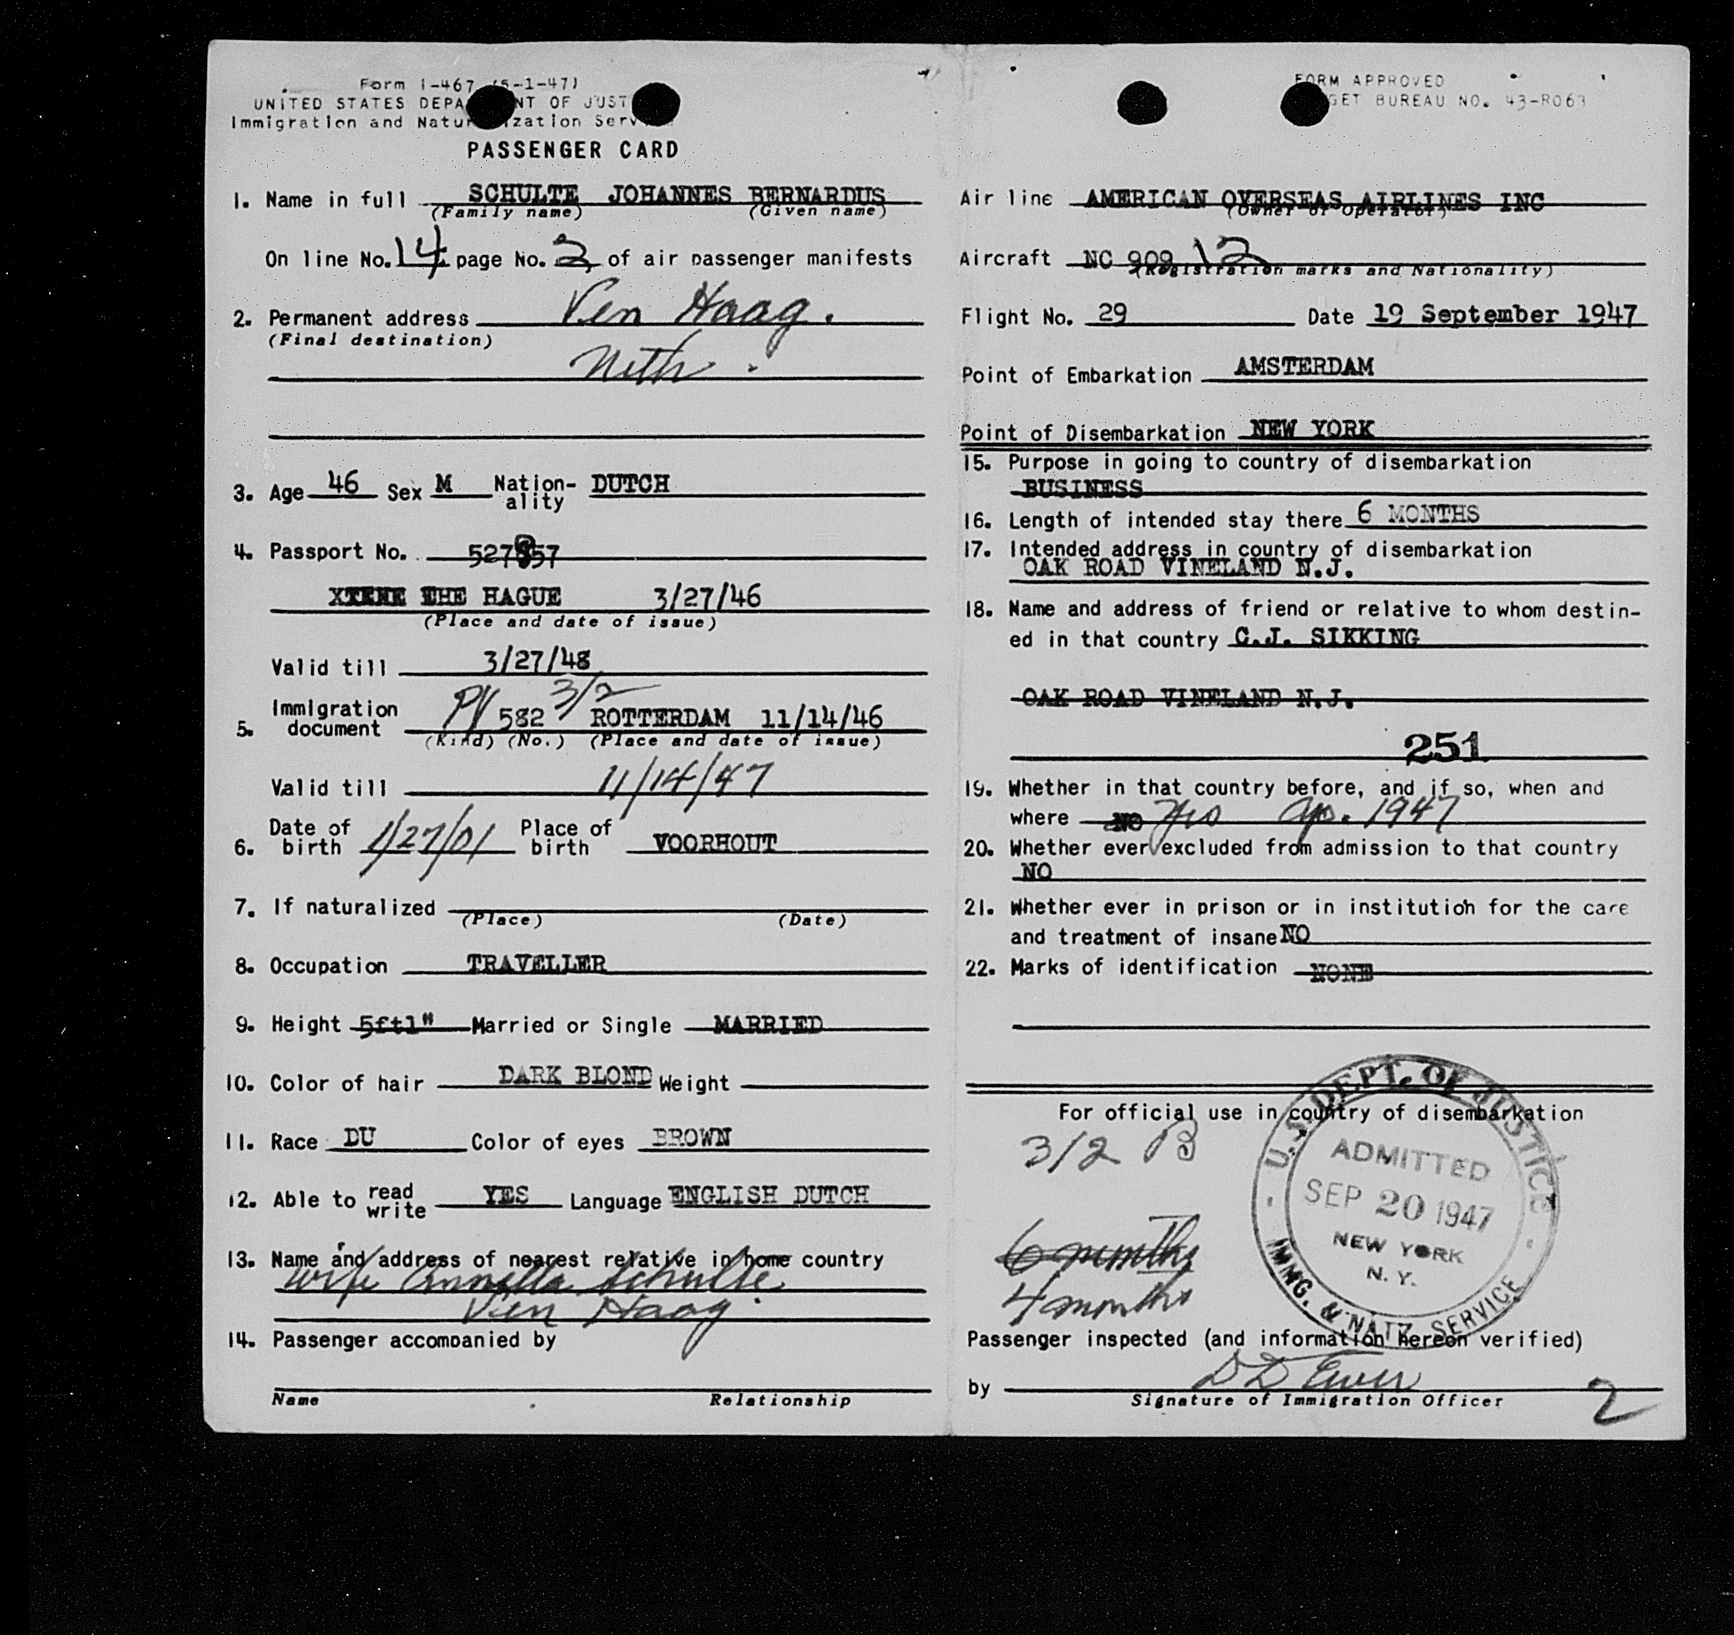 Form I-467 (5-1-47)
UNITED STATES DEPA NT OF JUST
Immigration and Natur ization Serv
PASSENGER CARD
1. Name in full SCHULTE JOHANNES BERNARDUS
(Family name) (Given name)
On line No. 14 page No. 2 of air passenger manifests
2. Permanent address Den Haag.
(Final destination)
Neth.
3. Age 46 Sex M Nation-ality DUTCH
4. Passport No. 527857
THE HAGUE 3/27/46
(Place and date of issue)
Valid till 3/27/48
3/2
5. Immigration document PV 582 ROTTERDAM 11/14/46
(Kind) (No.) (Place and date of issue)
Valid till 11/14/47
6. Date of birth 1/27/01 Place of birth VOORHOUT
7. If naturalized
(Place) (Date)
8. Occupation TRAVELLER
9. Height 5ft1" Married or Single MARRIED
10. Color of hair DARK BLOND Weight
11. Race DU Color of eyes BROWN
12. Able to read write YES Language ENGLISH DUTCH
13. Name and address of nearest relative in home country
wife Schulte
Den Haag.
14. Passenger accompanied by
Name Relationship
FORM APPROVED
GET BUREAU NO. 43-R063
Air line AMERICAN OVERSEAS AIRLINES INC
(Owner or Operator)
Aircraft NC 909 12
(Registration marks and Nationality)
Flight No. 29 Date 19 September 1947
Point of Embarkation AMSTERDAM
Point of Disembarkation NEW YORK
15. Purpose in going to country of disembarkation
BUSINESS
16. Length of intended stay there 6 MONTHS
17. Intended address in country of disembarkation
OAK ROAD VINELAND N.J.
18. Name and address of friend or relative to whom destin-
ed in that country C.J. SIKKING
OAK ROAD VINELAND N.J.
251
19. Whether in that country before, and if so, when and
where NO Yes Ap. 1947
20. Whether ever excluded from admission to that country
NO
21. Whether ever in prison or in institution for the care
and treatment of insane NO
22. Marks of identification NONE
For official use in country of disembarkation
3/2 B
6 months
4 months
U.S. DEPT. OF JUSTICE
ADMITTED
SEP 20 1947
NEW YORK
N.Y.
IMMG. & NATZ. SERVICE
Passenger inspected (and information hereon verified)
by
Signature of Immigration Officer
2